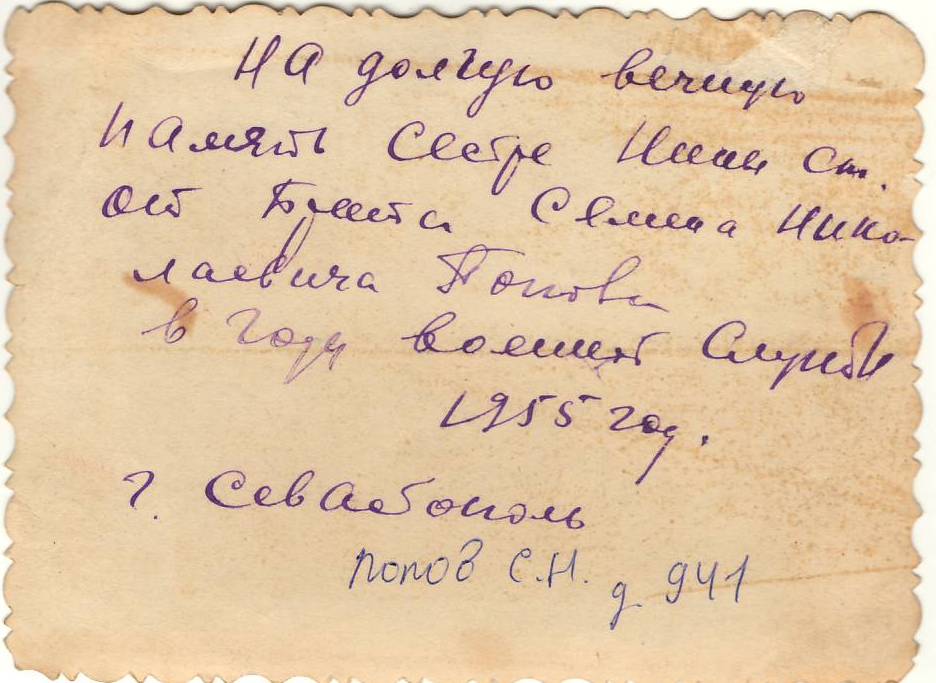 На долгую вечную
память Сестре Нини ст.
от Брата Семена Нико-
лаевича Попова
в году военной Службы
1955 год.
г. Севастополь
Попов С.Н. д 941